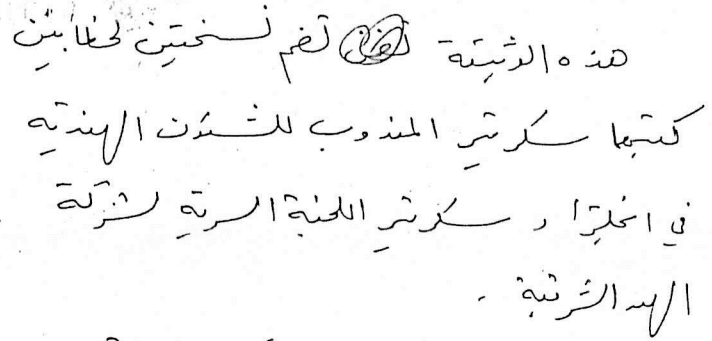 هذه الوثيقة تضم نسختين لخطابين
كتبهما سكرتير المندوب للشئون الهندية
في انجلترا و سكرتير اللجنة السرية لشركة
الهند الشرقية .